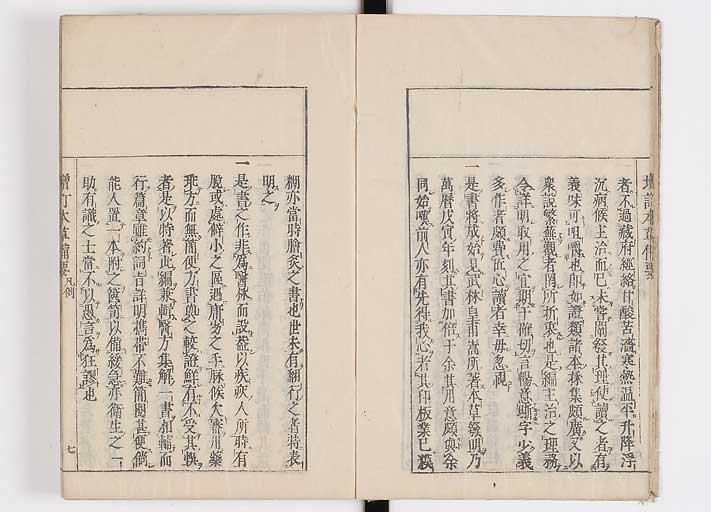 増訂本草備要
者不過藏府經絡甘酸苦濇寒熱温平升降浮
沉病候主治而已未嘗闡發其理使讀之者有
義味可咀嚼也即如證類諸本採集頗廣又以
衆説繁蕪觀者罔所折衷也是編主治之理務
令詳明取用之宜期于確切言暢意晰字少義
多作者頗費匠心讀者幸毋忽視
一 是書將成始見武林皇甫嵩所著本草發明乃
萬曆戊寅年刻其書加倍于余其用意頗與余
同始嘆前人亦有先得我心者其印板業已漠
糊亦當時膾炙之書也世未有翻行之者特表
明之
一 是書之作非爲醫林而設蓋以疾疢人所時有
脱或處僻小之區遇庸劣之手脉候欠審用藥
乖方而無簡便方書與之較證鮮有不受其悞
者是以特著此編兼輯醫方集解一書相輔而
行篇章雖約詞旨詳明携帶不難簡閲甚便倘
能人置一本附之篋笥以備緩急亦衛生之一
助有識之士當不以愚言爲狂謬也
増訂本草備要 凡例 七